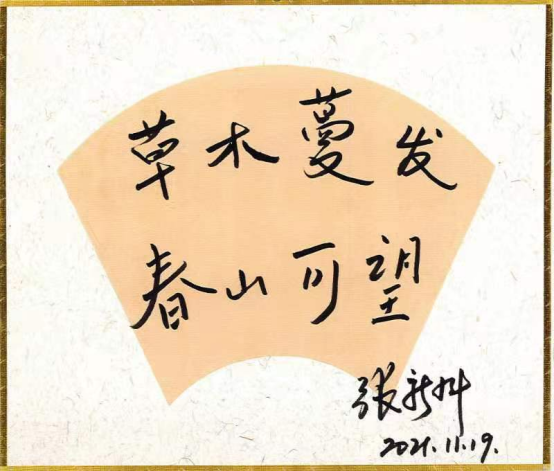 草木蔓发
春山可望
张新科
2021.11.19.